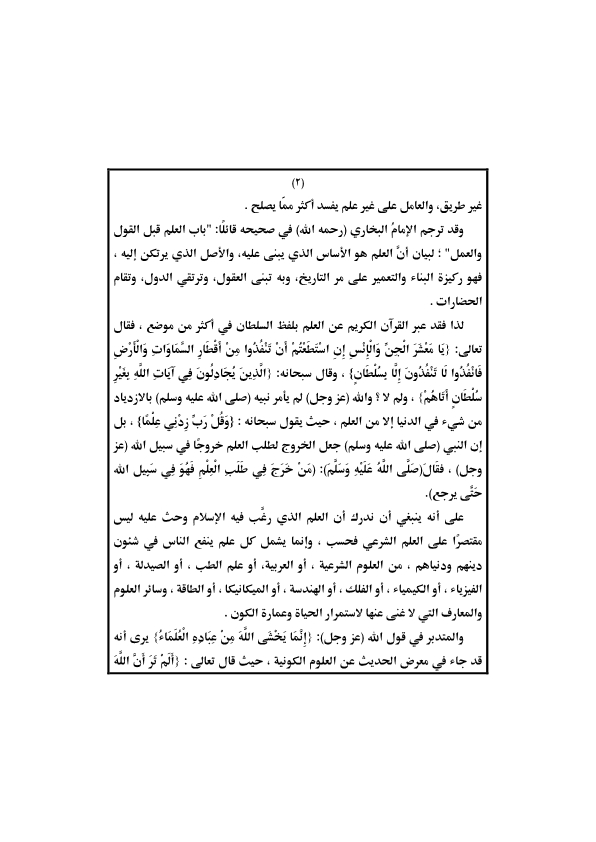 (٢)
غير طريق، والعامل على غير علم يفسد أكثر ممّا يصلح .
وقد ترجم الإمامُ البخاري (رحمه الله) في صحيحه قائلًا: "باب العلم قبل القول
والعمل" ؛ لبيان أنَّ العلم هو الأساس الذي يبنى عليه، والأصل الذي يرتكن إليه ،
فهو ركيزة البناء والتعمير على مر التاريخ، وبه تبنى العقول، وترتقي الدول، وتقام
الحضارات .
لذا فقد عبر القرآن الكريم عن العلم بلفظ السلطان في أكثر من موضع ، فقال
تعالى: {يَا مَعْشَرَ الْجِنِّ وَالْإِنْسِ إِنِ اسْتَطَعْتُمْ أَنْ تَنْفُذُوا مِنْ أَقْطَارِ السَّمَاوَاتِ وَالْأَرْضِ
فَانْفُذُوا لَا تَنْفُذُونَ إِلَّا بِسُلْطَانٍ} ، وقال سبحانه: {الَّذِينَ يُجَادِلُونَ فِي آيَاتِ اللَّهِ بِغَيْرِ
سُلْطَانٍ أَتَاهُمْ} ، ولم لا ؟ والله (عز وجل) لم يأمر نبيه (صلى الله عليه وسلم) بالازدياد
من شيء في الدنيا إلا من العلم ، حيث يقول سبحانه : {وَقُلْ رَبِّ زِدْنِي عِلْمًا} ، بل
إن النبي (صلى الله عليه وسلم) جعل الخروج لطلب العلم خروجًا في سبيل الله (عز
وجل) ، فقَالَ(صَلَّى اللَّهُ عَلَيْهِ وَسَلَّمَ): (مَنْ خَرَجَ فِي طَلَبِ الْعِلْمِ فَهُوَ فِي سَبِيلِ الله
حَتَّى يرجع).
على أنه ينبغي أن ندرك أن العلم الذي رغَّب فيه الإسلام وحث عليه ليس
مقتصرًا على العلم الشرعي فحسب ، وإنما يشمل كل علم ينفع الناس في شئون
دينهم ودنياهم ، من العلوم الشرعية ، أو العربية، أو علم الطب ، أو الصيدلة ، أو
الفيزياء ، أو الكيمياء ، أو الفلك ، أو الهندسة ، أو الميكانيكا ، أو الطاقة ، وسائر العلوم
والمعارف التي لا غنى عنها لاستمرار الحياة وعمارة الكون .
والمتدبر في قول الله (عز وجل): {إِنَّمَا يَخْشَى اللَّهَ مِنْ عِبَادِهِ الْعُلَمَاءُ} يرى أنه
قد جاء في معرض الحديث عن العلوم الكونية ، حيث قال تعالى : {أَلَمْ تَرَ أَنَّ اللَّهَ